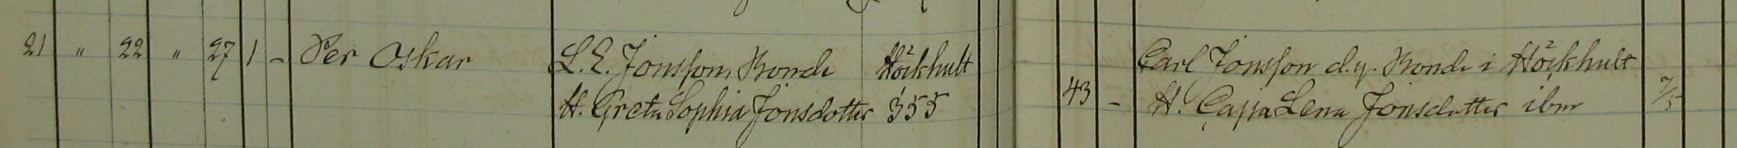 21 " 22 " 27 1 - Per Oskar L. E. Jonsson, Bonde Höckhult Carl Jonsson d.y. Bonde i Höckhult
H. Greta Sophia Jonsdotter 355 43 - H. Cajsa Lena Jonsdotter ibm 7/5